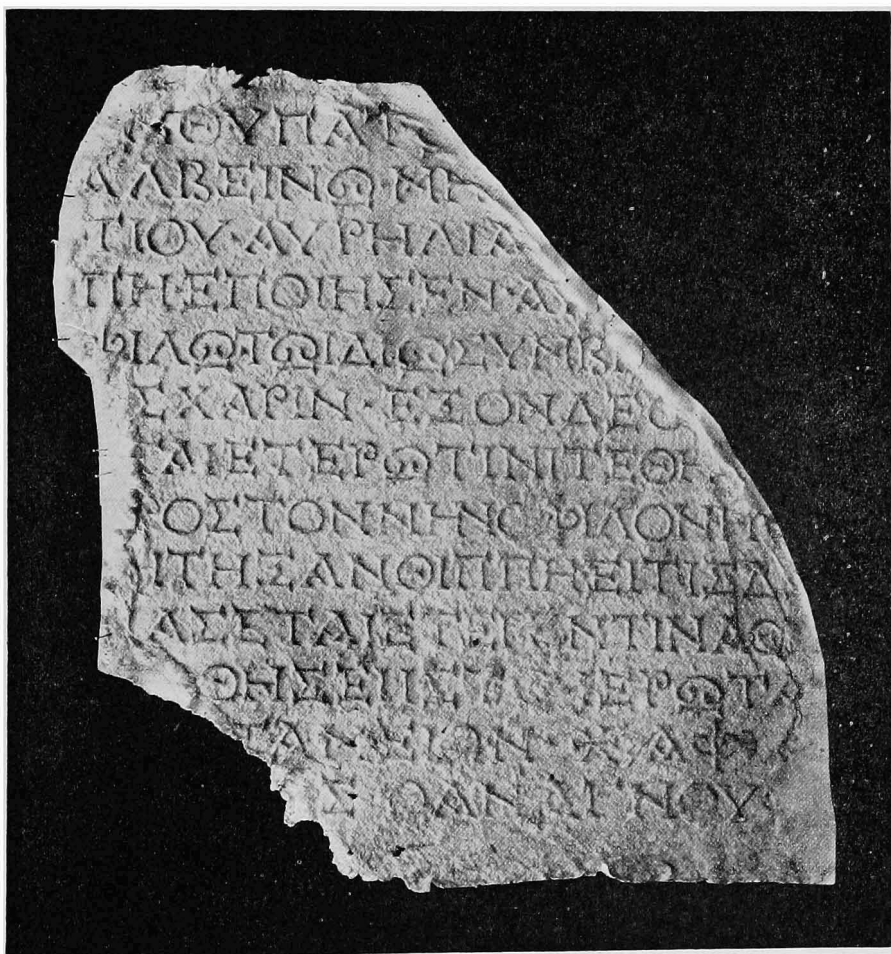 ΘΥΠΑ
ΑΛΒΕΙΝΩ·ΜΗ
ΤΙΟΥ·ΑΥΡΗΛΙΑ
ΠΗ·ΕΠΟΙΗΣΕΝ·Α
ΦΙΛΩ·ΤΩΙΔΙΩΣΥΝΒ
ΣΧΑΡΙΝ·ΕΞΟΝΔΕ
ΑΙΕΤΕΡΩΤΙΝΙΤΕΘΗ
ΡΟΣΤΟΝΝΗΝΟΦΙΛΟΝ
ΙΤΗΞΑΝΘΙΠΠΗΕΙΤΙΣΔ
ΑΣΕΤΑΙΕΤΕΡΟΝΤΙΝΑ
ΘΗΣΕΙΙΣ ΙΕΡΩΤΑ
ΤΑΜΕΙΟΝ·ΑΦ
ΘΑΝ ΝΟΥ